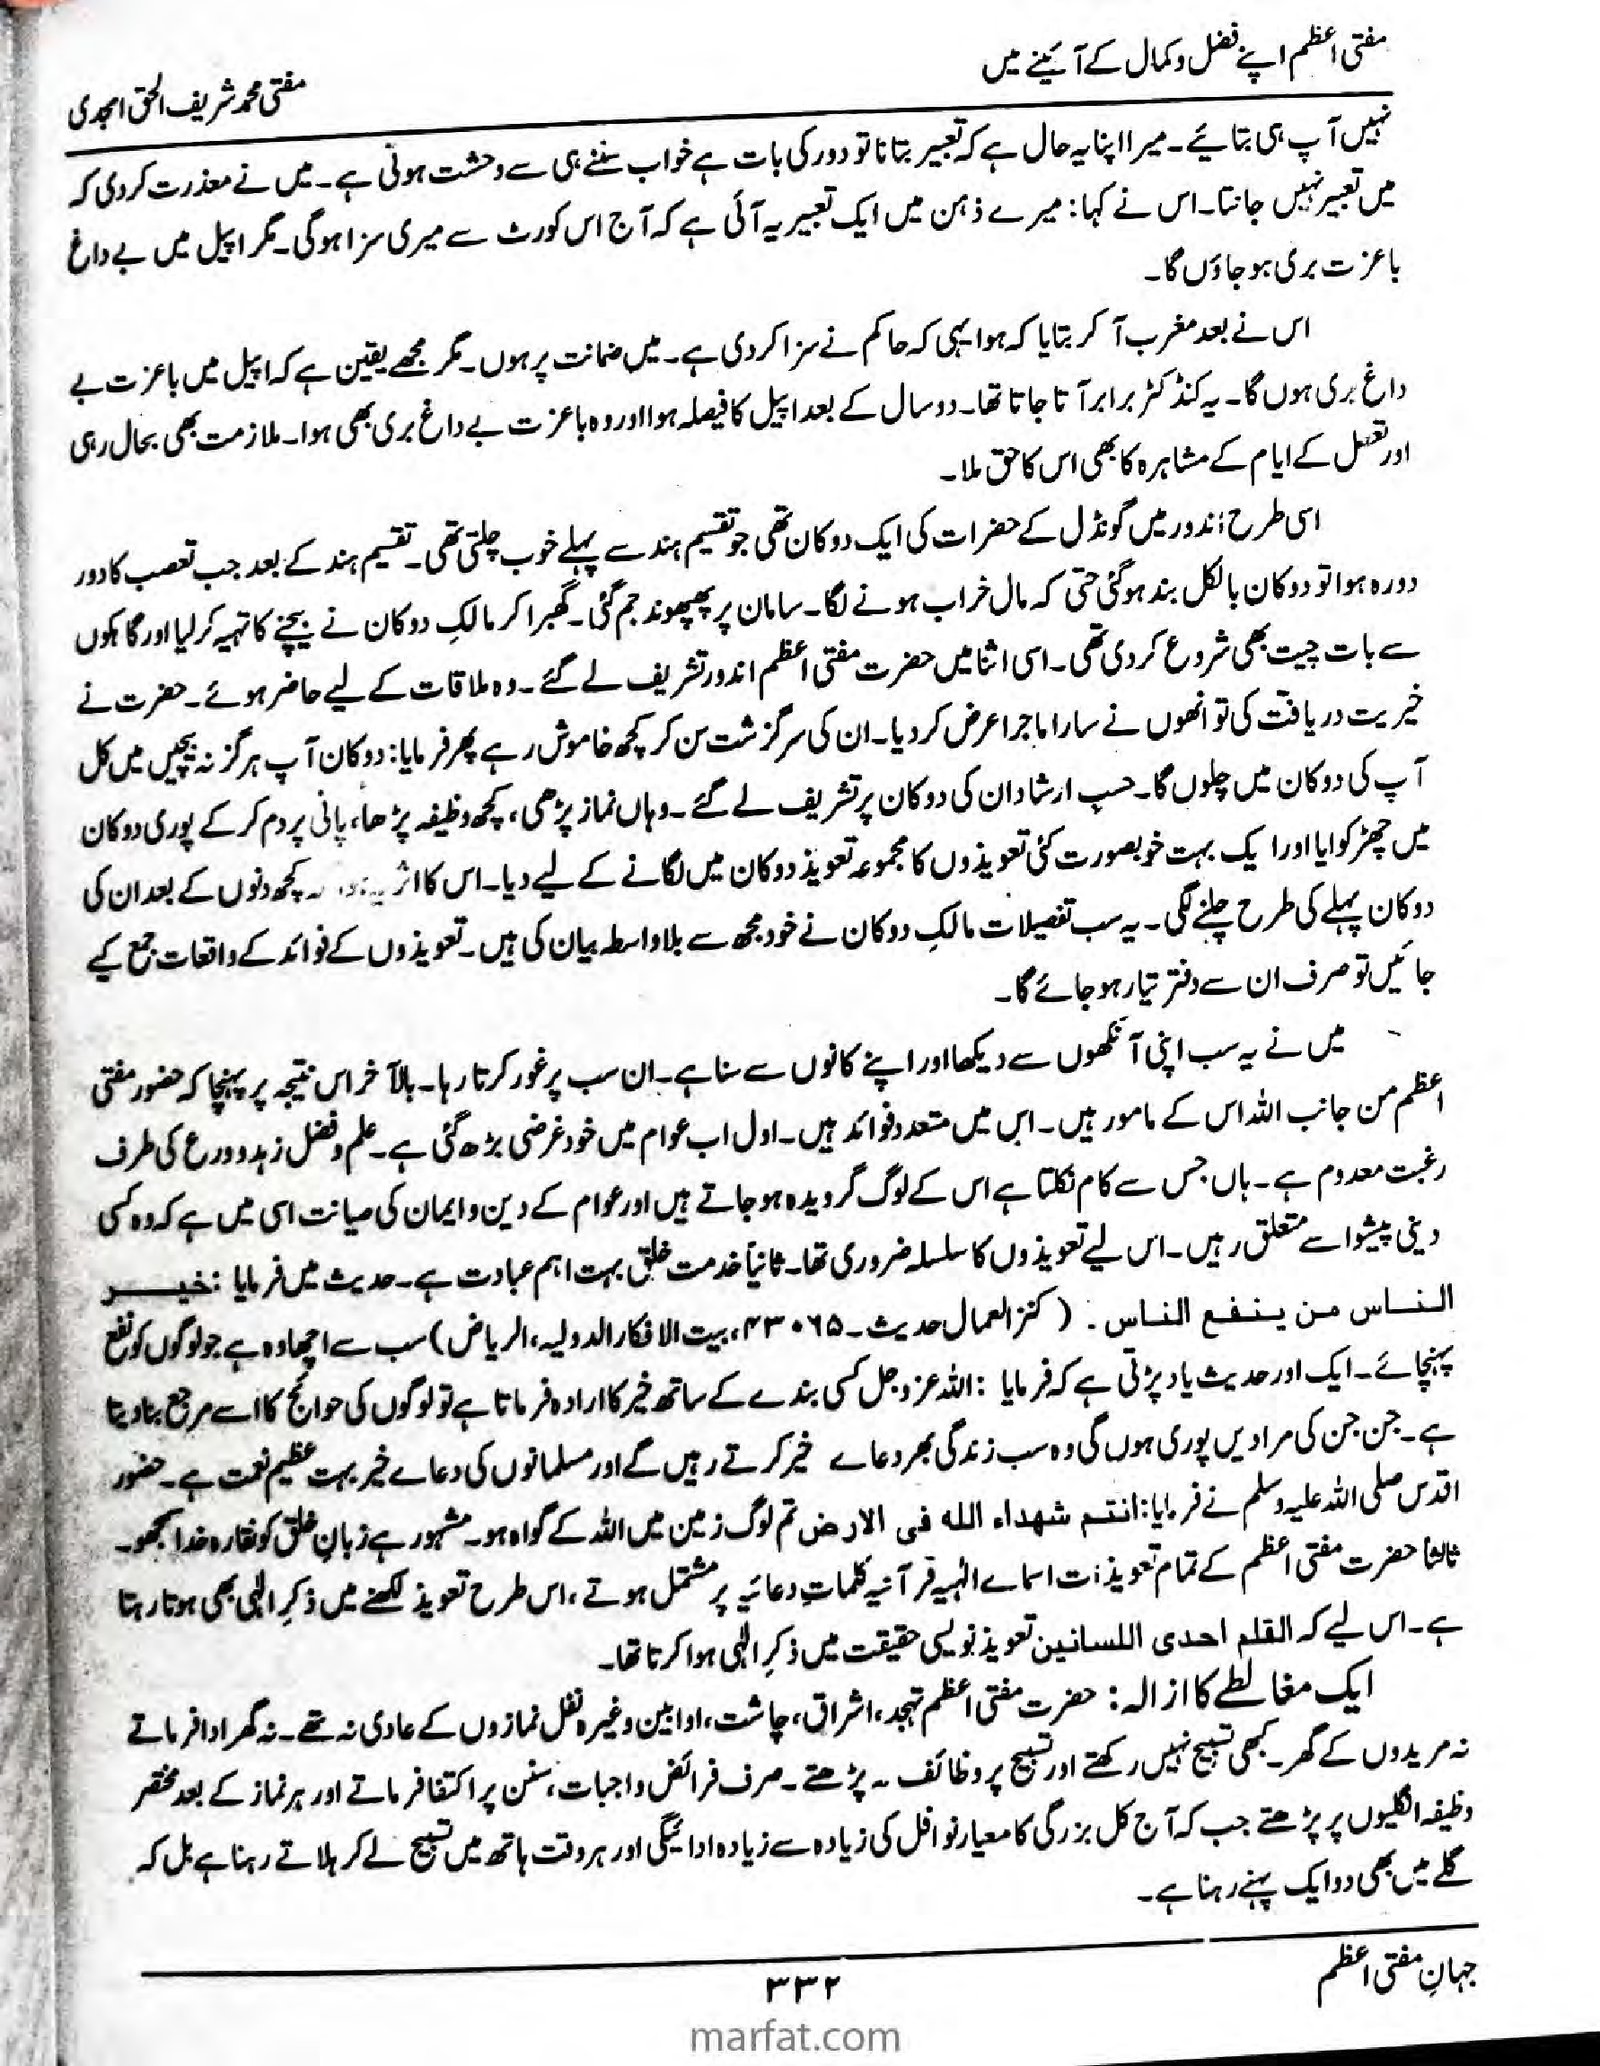 مفتی اعظم اپنے فضل و کمال کے آئینے میں
مفتی محمد شریف الحق امجدی
نہیں آپ ہی بتائیے۔ میرا اپنا یہ حال ہے کہ تعبیر بتانا تو دور کی بات ہے خواب سننے ہی سے وحشت ہوتی ہے۔ میں نے معذرت کردی کہ
میں تعبیر نہیں جانتا۔ اس نے کہا: میرے ذہن میں ایک تعبیر یہ آئی ہے کہ آج اس کورٹ سے میری سزا ہوگی۔ مگر اپیل میں بے داغ
باعزت بری ہو جاؤں گا۔
اس نے بعد مغرب آ کر بتایا کہ ہوا یہی کہ حاکم نے سزا کردی ہے۔ میں ضمانت پر ہوں۔ مگر مجھے یقین ہے کہ اپیل میں باعزت بے
داغ بری ہوں گا۔ یہ کنڈکٹر برابر آتا جاتا تھا۔ دو سال کے بعد اپیل کا فیصلہ ہوا اور وہ باعزت بے داغ بری بھی ہوا۔ ملازمت بھی بحال رہی
اور تعطل کے ایام کے مشاہرہ کا بھی اس کا حق ملا۔
اسی طرح اندور میں گونڈل کے حضرات کی ایک دوکان تھی جو تقسیم ہند سے پہلے خوب چلتی تھی۔ تقسیم ہند کے بعد جب تعصب کا دور
دورہ ہوا تو دوکان بالکل بند ہوگئی حتی کہ مال خراب ہونے لگا۔ سامان پر پھپھوند جم گئی۔ گھبرا کر مالکِ دوکان نے بیچنے کا تہیہ کرلیا اور گاہکوں
سے بات چیت بھی شروع کردی تھی۔ اسی اثنا میں حضرت مفتی اعظم اندور تشریف لے گئے۔ وہ ملاقات کے لیے حاضر ہوئے۔ حضرت نے
خیریت دریافت کی تو انھوں نے سارا ماجرا عرض کردیا۔ ان کی سرگزشت سن کر کچھ خاموش رہے پھر فرمایا: دوکان آپ ہرگز نہ بیچیں میں کل
آپ کی دوکان میں چلوں گا۔ حسب ارشاد ان کی دوکان پر تشریف لے گئے۔ وہاں نماز پڑھی، کچھ وظیفہ پڑھا، پانی پر دم کر کے پوری دوکان
میں چھڑکوایا اور ایک بہت خوبصورت کئی تعویذوں کا مجموعہ تعویذ دوکان میں لگانے کے لیے دیا۔ اس کا اثر یہ ہوا کہ کچھ دنوں کے بعد ان کی
دوکان پہلے کی طرح چلنے لگی۔ یہ سب تفصیلات مالکِ دوکان نے خود مجھ سے بلاواسطہ بیان کی ہیں۔ تعویذوں کے فوائد کے واقعات جمع کیے
جائیں تو صرف ان سے دفتر تیار ہو جائے گا۔
میں نے یہ سب اپنی آنکھوں سے دیکھا اور اپنے کانوں سے سنا ہے۔ ان سب پر غور کرتا رہا۔ بالآخر اس نتیجہ پر پہنچا کہ حضور مفتی
اعظم من جانب اللہ اس کے مامور ہیں۔ اس میں متعدد فوائد ہیں۔ اول اب عوام میں خود غرضی بڑھ گئی ہے۔ علم و فضل زہد و ورع کی طرف
رغبت معدوم ہے۔ ہاں جس سے کام نکلتا ہے اس کے لوگ گرویدہ ہو جاتے ہیں اور عوام کے دین و ایمان کی صیانت اسی میں ہے کہ وہ کسی
دینی پیشوا سے متعلق رہیں۔ اس لیے تعویذوں کا سلسلہ ضروری تھا۔ ثانیاً خدمت خلق بہت اہم عبادت ہے۔ حدیث میں فرمایا: خیر
الناس من ینفع الناس۔ (کنز العمال حدیث۔ ۴۳۰۶۵، بیت الافکار الدولیہ، الریاض) سب سے اچھا وہ ہے جو لوگوں کو نفع
پہنچائے۔ ایک اور حدیث یاد پڑتی ہے کہ فرمایا: اللہ عزوجل کسی بندے کے ساتھ خیر کا ارادہ فرماتا ہے تو لوگوں کی حوائج کا اسے مرجع بنا دیتا
ہے۔ جن جن کی مرادیں پوری ہوں گی وہ سب زندگی بھر دعاے خیر کرتے رہیں گے اور مسلمانوں کی دعاے خیر بہت عظیم نعمت ہے۔ حضور
اقدس صلی اللہ علیہ وسلم نے فرمایا: انتم شھداء اللہ فی الارض تم لوگ زمین میں اللہ کے گواہ ہو۔ مشہور ہے زبانِ خلق کو نقارہ خدا سمجھو۔
ثالثاً حضرت مفتی اعظم کے تمام تعویذات اسماے الٰہیہ قرآنیہ کلماتِ دعائیہ پر مشتمل ہوتے، اس طرح تعویذ لکھنے میں ذکرِ الٰہی بھی ہوتا رہتا
ہے۔ اس لیے کہ القلم احدی اللسانین تعویذ نویسی حقیقت میں ذکرِ الٰہی ہوا کرتا تھا۔
ایک مغالطے کا ازالہ: حضرت مفتی اعظم تہجد، اشراق، چاشت، اوابین وغیرہ نفل نمازوں کے عادی نہ تھے۔ نہ گھر ادا فرماتے
نہ مریدوں کے گھر۔ کبھی تسبیح نہیں رکھتے اور تسبیح پر وظائف نہ پڑھتے۔ صرف فرائض واجبات، سنن پر اکتفا فرماتے اور ہر نماز کے بعد مختصر
وظیفہ انگلیوں پر پڑھتے جب کہ آج کل بزرگی کا معیار نوافل کی زیادہ سے زیادہ ادائیگی اور ہر وقت ہاتھ میں تسبیح لے کر ہلاتے رہنا ہے بل کہ
گلے میں بھی دو ایک پہنے رہنا ہے۔
جہانِ مفتی اعظم
۳۳۲
marfat.com